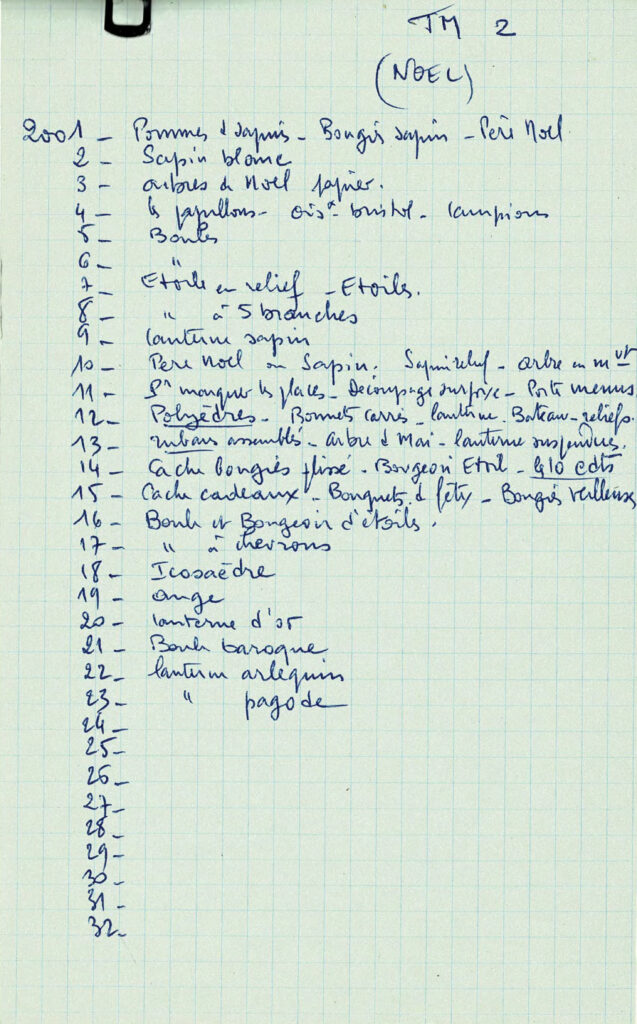 TM 2
(NOEL)
2001 - Pommes d sapins - Bougies sapin - Père Noel
2 - Sapin blanc
3 - arbres de Noel papier.
4 - les papillons - oisx bristol - lampions
5 - Boules
6 - "
7 - Etoile en relief - Etoiles.
8 - " à 5 branches
9 - lanterne sapin
10 - Père Noel ou Sapin. Sapin relief - arbre en mvt
11 - Pr marquer les places - Découpage surprise - Porte menus
12 - Polyèdres - Bonnets carrés - lanterne. Bateau - reliefs.
13 - rubans assemblés - arbre d Mai - lanterne suspendues.
14 - Cache bougies plissé - Bougeoir Etoil - les 10 cdts
15 - Cache cadeaux - Bouquets d fêtes - Bougies veilleuses
16 - Boule et Bougeoir d'étoiles.
17 - " à chevrons
18 - Icosaèdre
19 - ange
20 - lanterne d'or
21 - Boule baroque
22 - lanterne arlequin
23 - " pagode
24 -
25 -
26 -
27 -
28 -
29 -
30 -
31 -
32 -